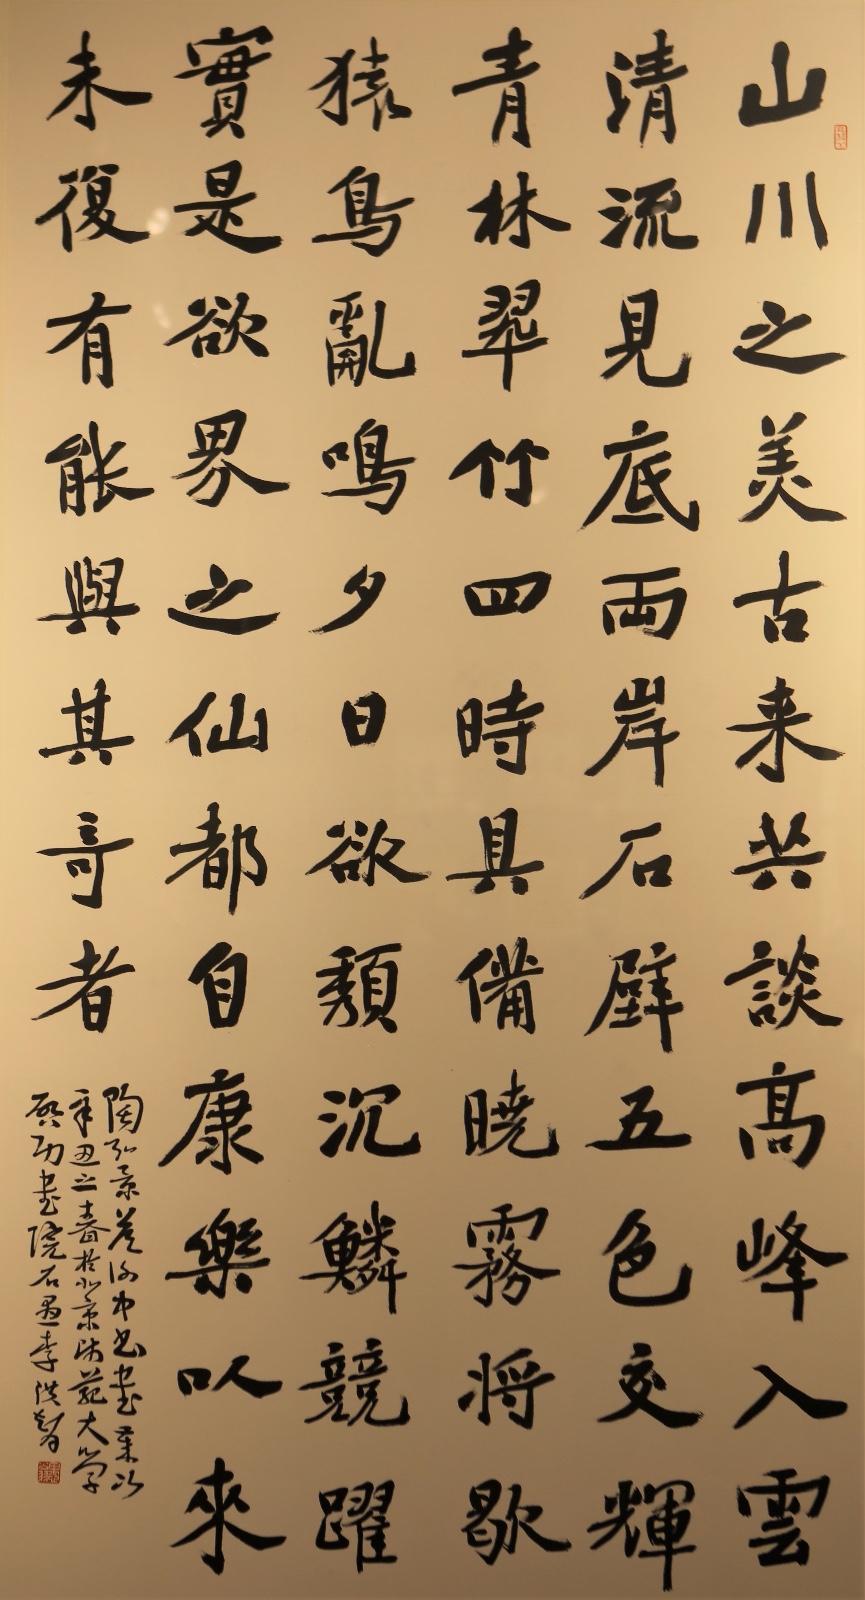 山川之美古来共談高峰入雲
清流見底両岸石壁五色交輝
青林翠竹四時具備暁霧将歇
猿鳥亂鳴夕日欲頹沉鱗競躍
實是欲界之仙都自康樂以來
未復有能與其奇者
陶弘景答谢中书書
辛丑之春於北京师范大学
启功書院石愚李洪智